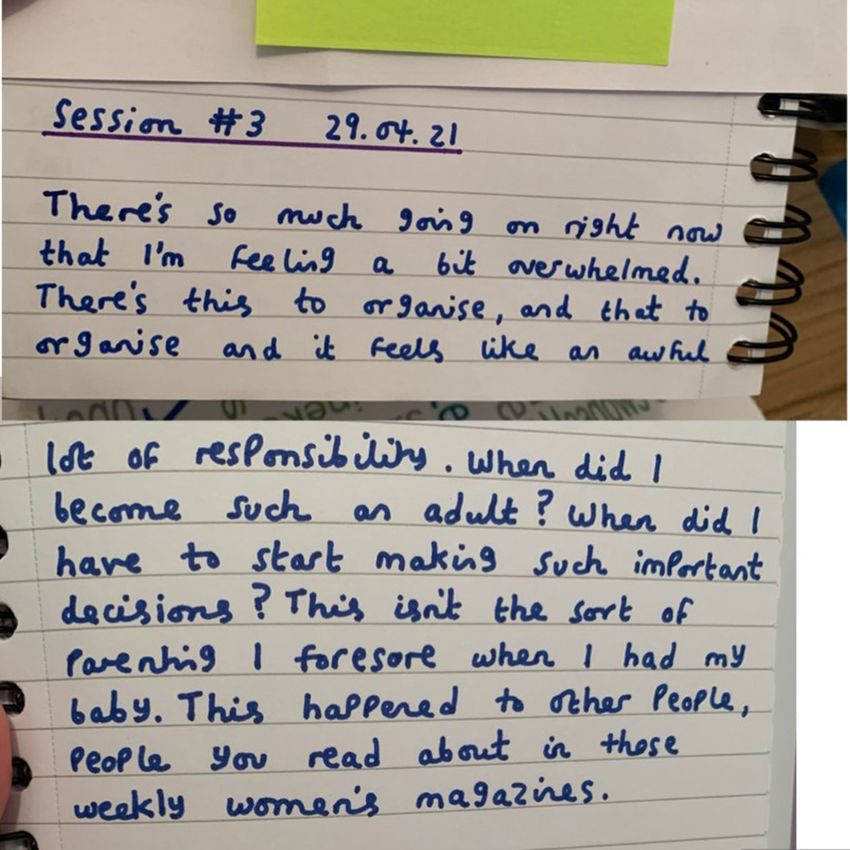 Session #3 29.04.21
There's so much going on right now
that I'm feeling a bit overwhelmed.
There's this to organise, and that to
organise and it feels like an awful
lot of responsibility. When did I
become such an adult? When did I
have to start making such important
decisions? This isn't the sort of
parenting I foresore when I had my
baby. This happened to other people,
people you read about in those
weekly women's magazines.